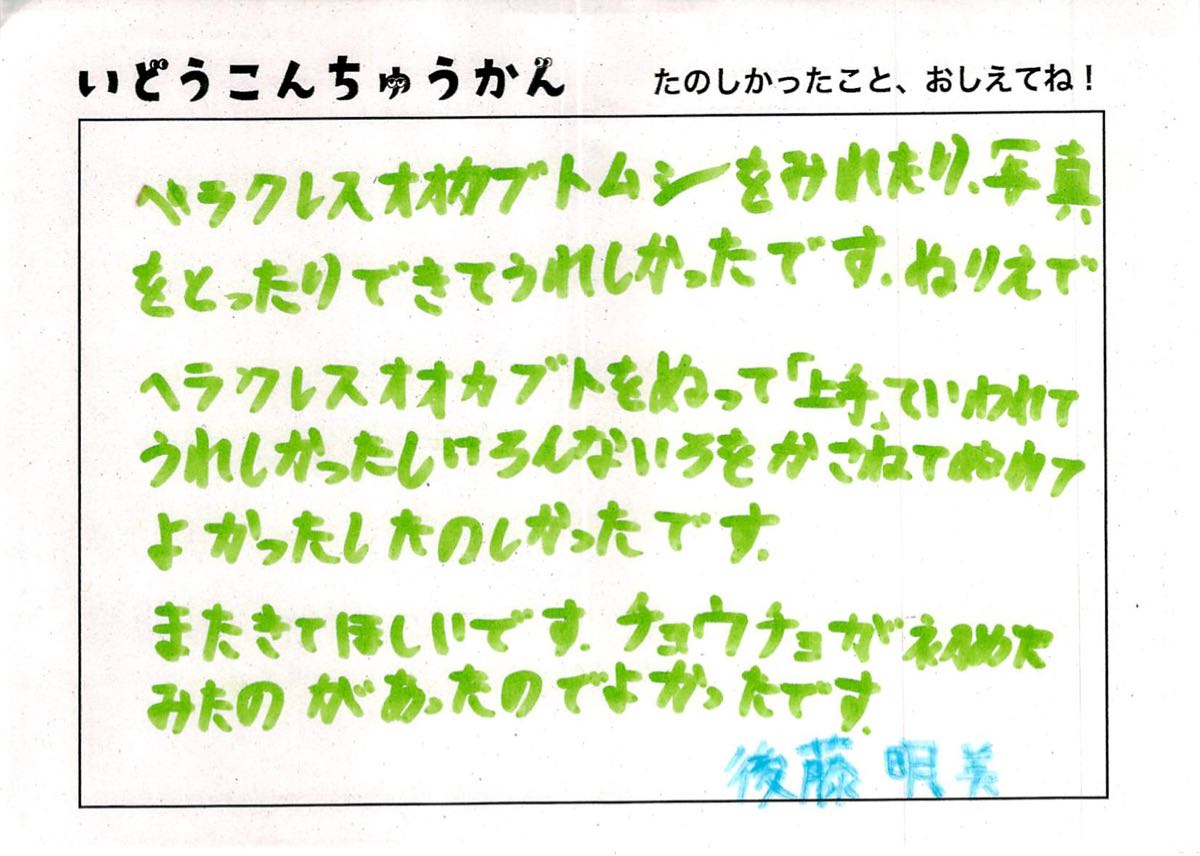 いどうこんちゅうかん
たのしかったこと、おしえてね!
ヘラクレスオオカブトムシーをみれたり、写真
をとったりできてうれしかったです。ぬりえで
ヘラクレスオオカブトをぬって「上手」ていわれて
うれしかったしいろんないろをかさねてぬれて
よかったしたのしかったです。
またきてほしいです。チョウチョが初めた
みたのがあったのでよかったです。
後藤 明美